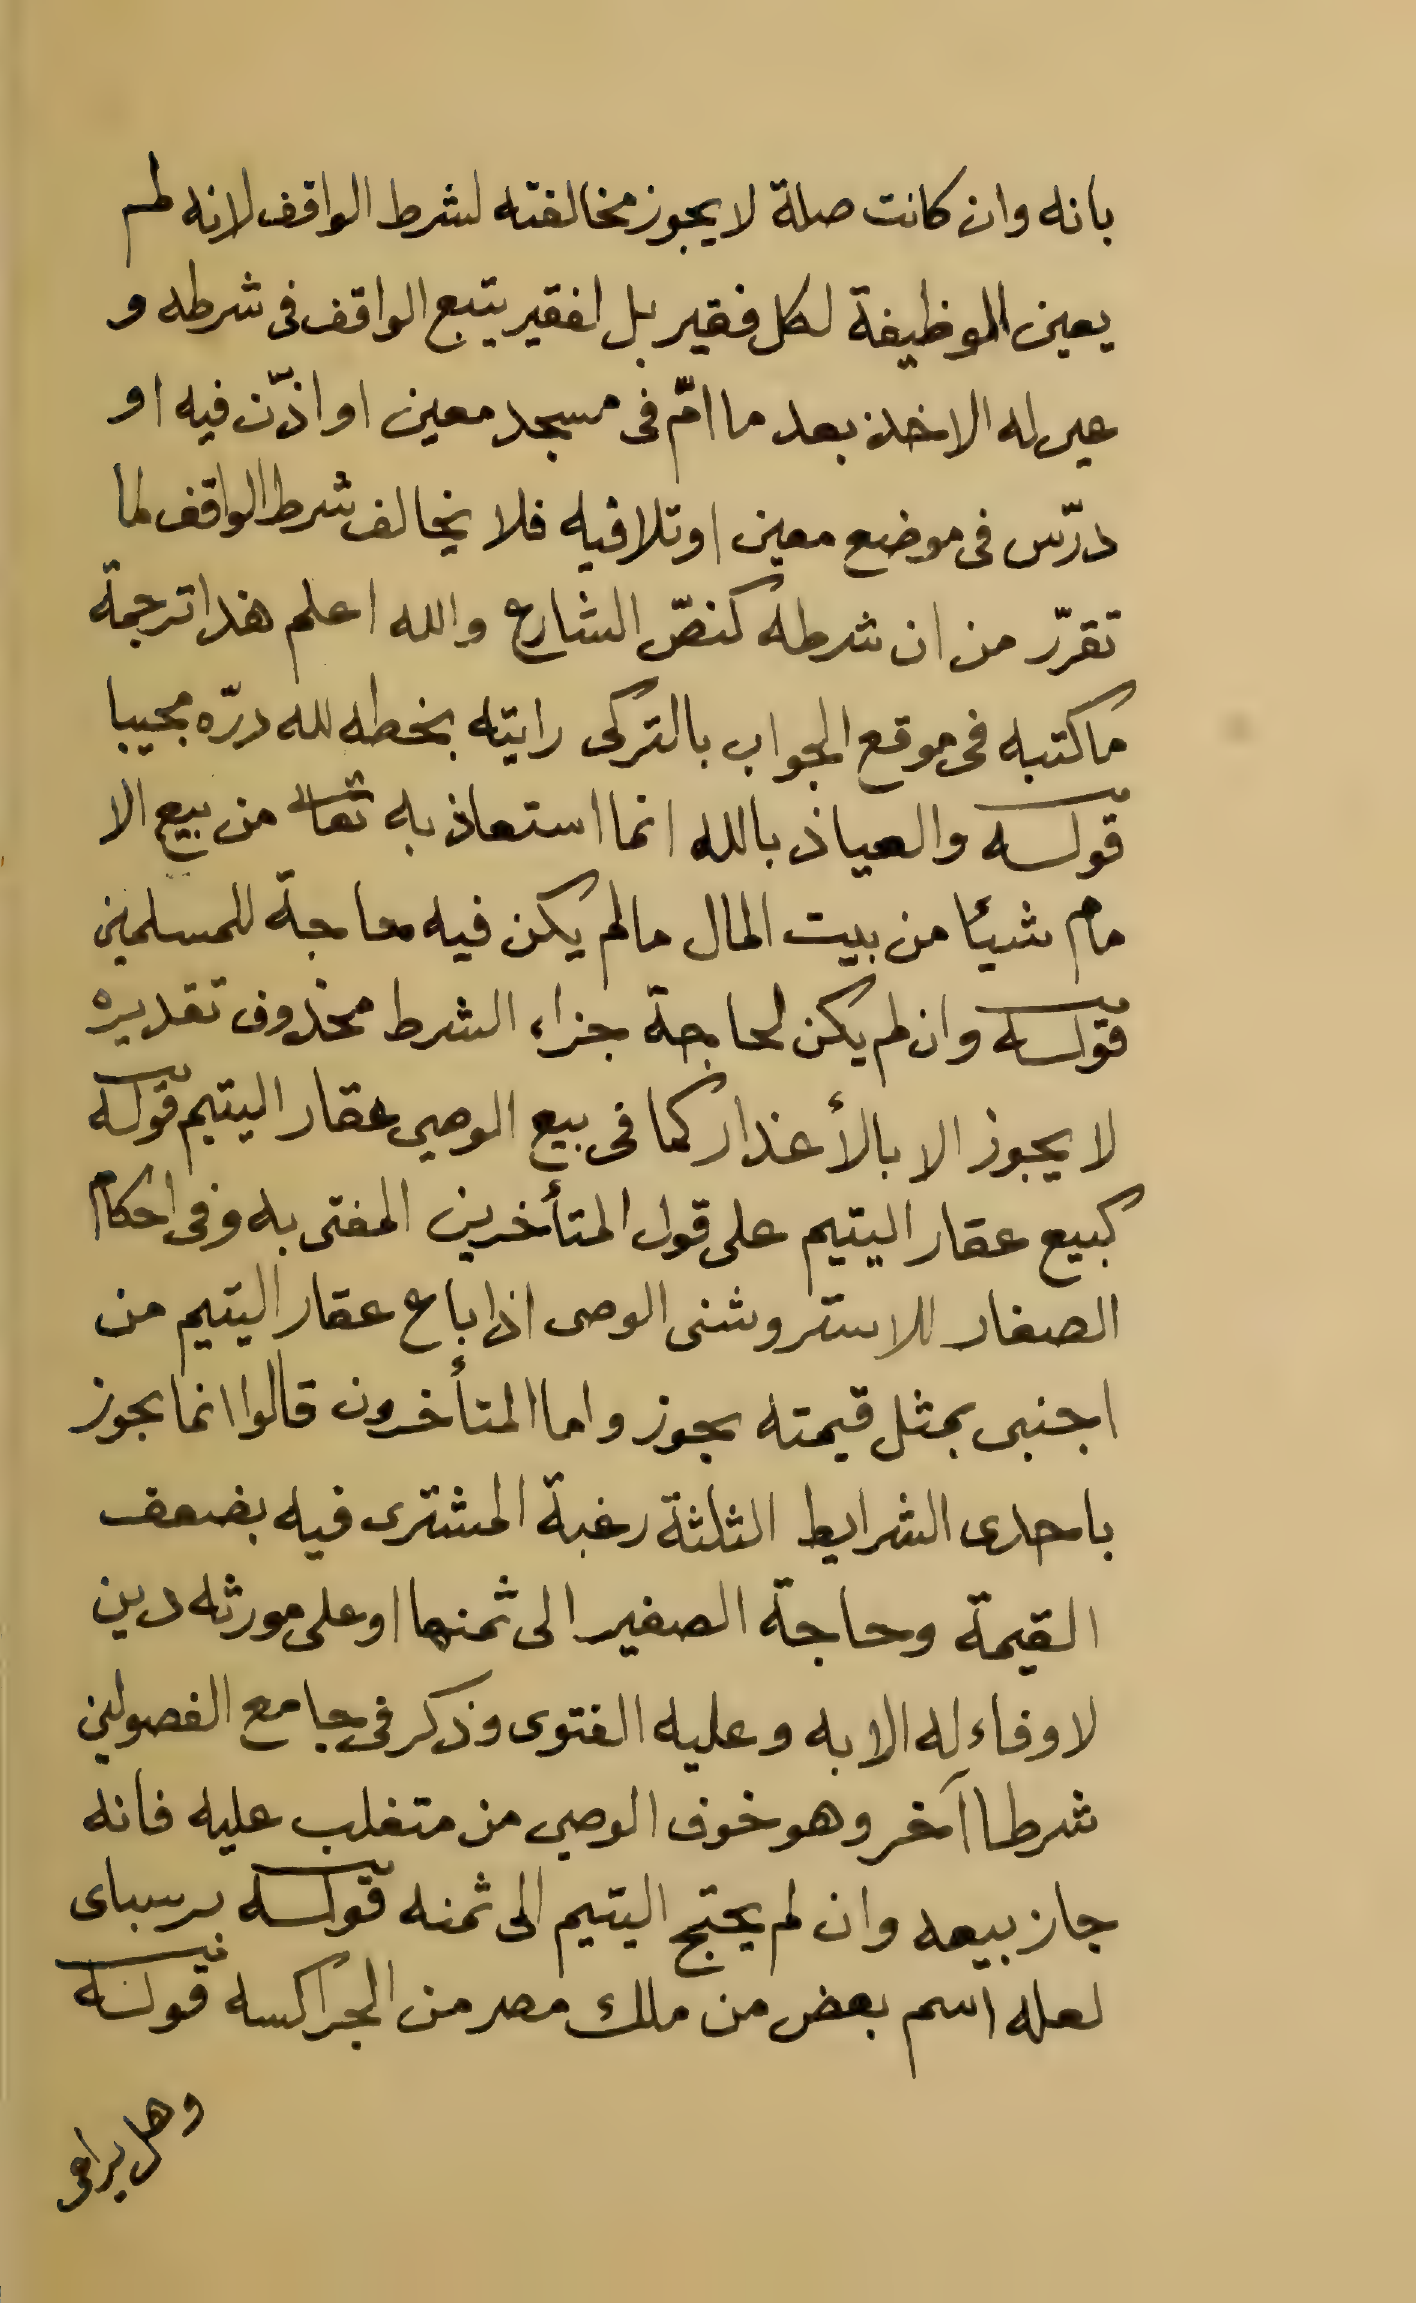 بانه وان كانت صلة لا يجوز مخالفته لشرط الواقف لانه لم
يعين الوظيفة لكل فقير بل لفقير يتبع الواقف فى شرطه و
عين له الاخذ بعد ما امّ فى مسجد معين او اذّن فيه او
درّس فى موضع معين او تلا فيه فلا يخالف شرط الواقف لما
تقرّر من ان شرطه كنصّ الشارع والله اعلم هذا ترجمة
ما كتبه فى موقع الجواب بالتركى رايته بخطه لله درّه مجيبا
قوله والعياذ بالله انما استعاذ به تعالى من بيع الا
مام شيئا من بيت المال مالم يكن فيه حاجة للمسلمين
قوله وان لم يكن لحاجة جزاء الشرط محذوف تقديره
لا يجوز الا بالأعذار كما فى بيع الوصى عقار اليتيم قوله
كبيع عقار اليتيم على قول المتأخرين المفتى به وفى احكام
الصغار للاستروشنى الوصى اذا باع عقار اليتيم من
اجنبى بمثل قيمته يجوز واما المتأخرون قالوا انما يجوز
باحدى الشرايط الثلثة رغبة المشترى فيه بضعف
القيمة وحاجة الصغير الى ثمنها او على مورثه دين
لا وفاء له الا به وعليه الفتوى وذكر فى جامع الفصولين
شرطا آخر وهو خوف الوصى من متغلب عليه فانه
جاز بيعه وان لم يحتج اليتيم الى ثمنه قوله برسباى
لعله اسم بعض من ملك مصر من الجراكسه قوله
وهل يراعى